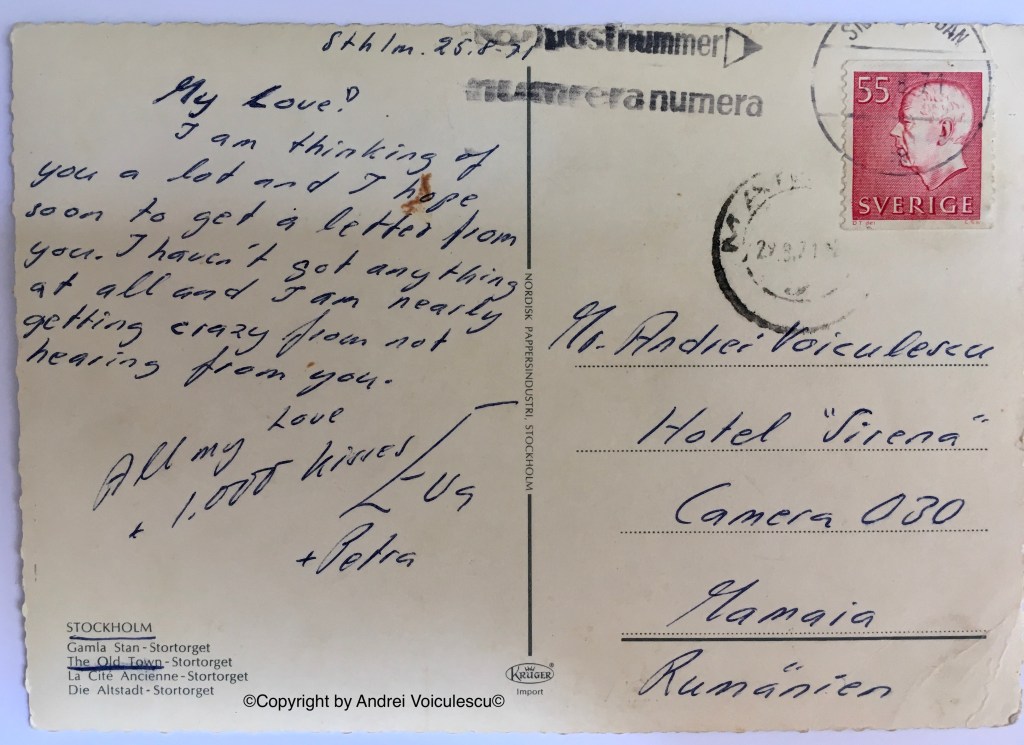 Sthlm. 25.8-71
My Love!
I am thinking of
you a lot and I hope
soon to get a letter from
you. I haven't got anything
at all and I am nearly
getting crazy from not
hearing from you.
Love
All my
+ 1.000 kisses
Eva
+ Petra
STOCKHOLM
Gamla Stan - Stortorget
The Old Town - Stortorget
La Cité Ancienne - Stortorget
Die Altstadt - Stortorget
NORDISK PAPPERSINDUSTRI, STOCKHOLM
KRÜGER
Import
postnummer
numrera numera
55
SVERIGE
29.8.71
Mr. Andrei Voiculescu
Hotel "Sirena"
Camera 030
Mamaia
Rumänien
©Copyright by Andrei Voiculescu©